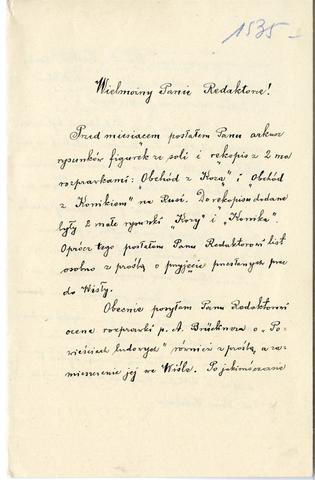 1535 –
Wielmożny Panie Redaktorze!
Przed miesiącem posłałem Panu arkusz
rysunków figurek ze soli i rękopis z 2 ma
rozprawkami: „Obchód z Kozą" i „Obchód
z Konikiem" na Rusi. Do rękopisu dodane
były 2 małe rysunki „Kozy" i „Konika".
Oprócz tego posłałem Panu Redaktorowi list
osobno z prośbą o przyjęcie przesłanych prac
do Wisły.
Obecnie posyłam Panu Redaktorowi
ocenę rozprawki p. A. Brücknera o „Po-
wieściach ludowych" również z prośbą, o za-
mieszczenie jej we Wiśle. Po jakimś czasie